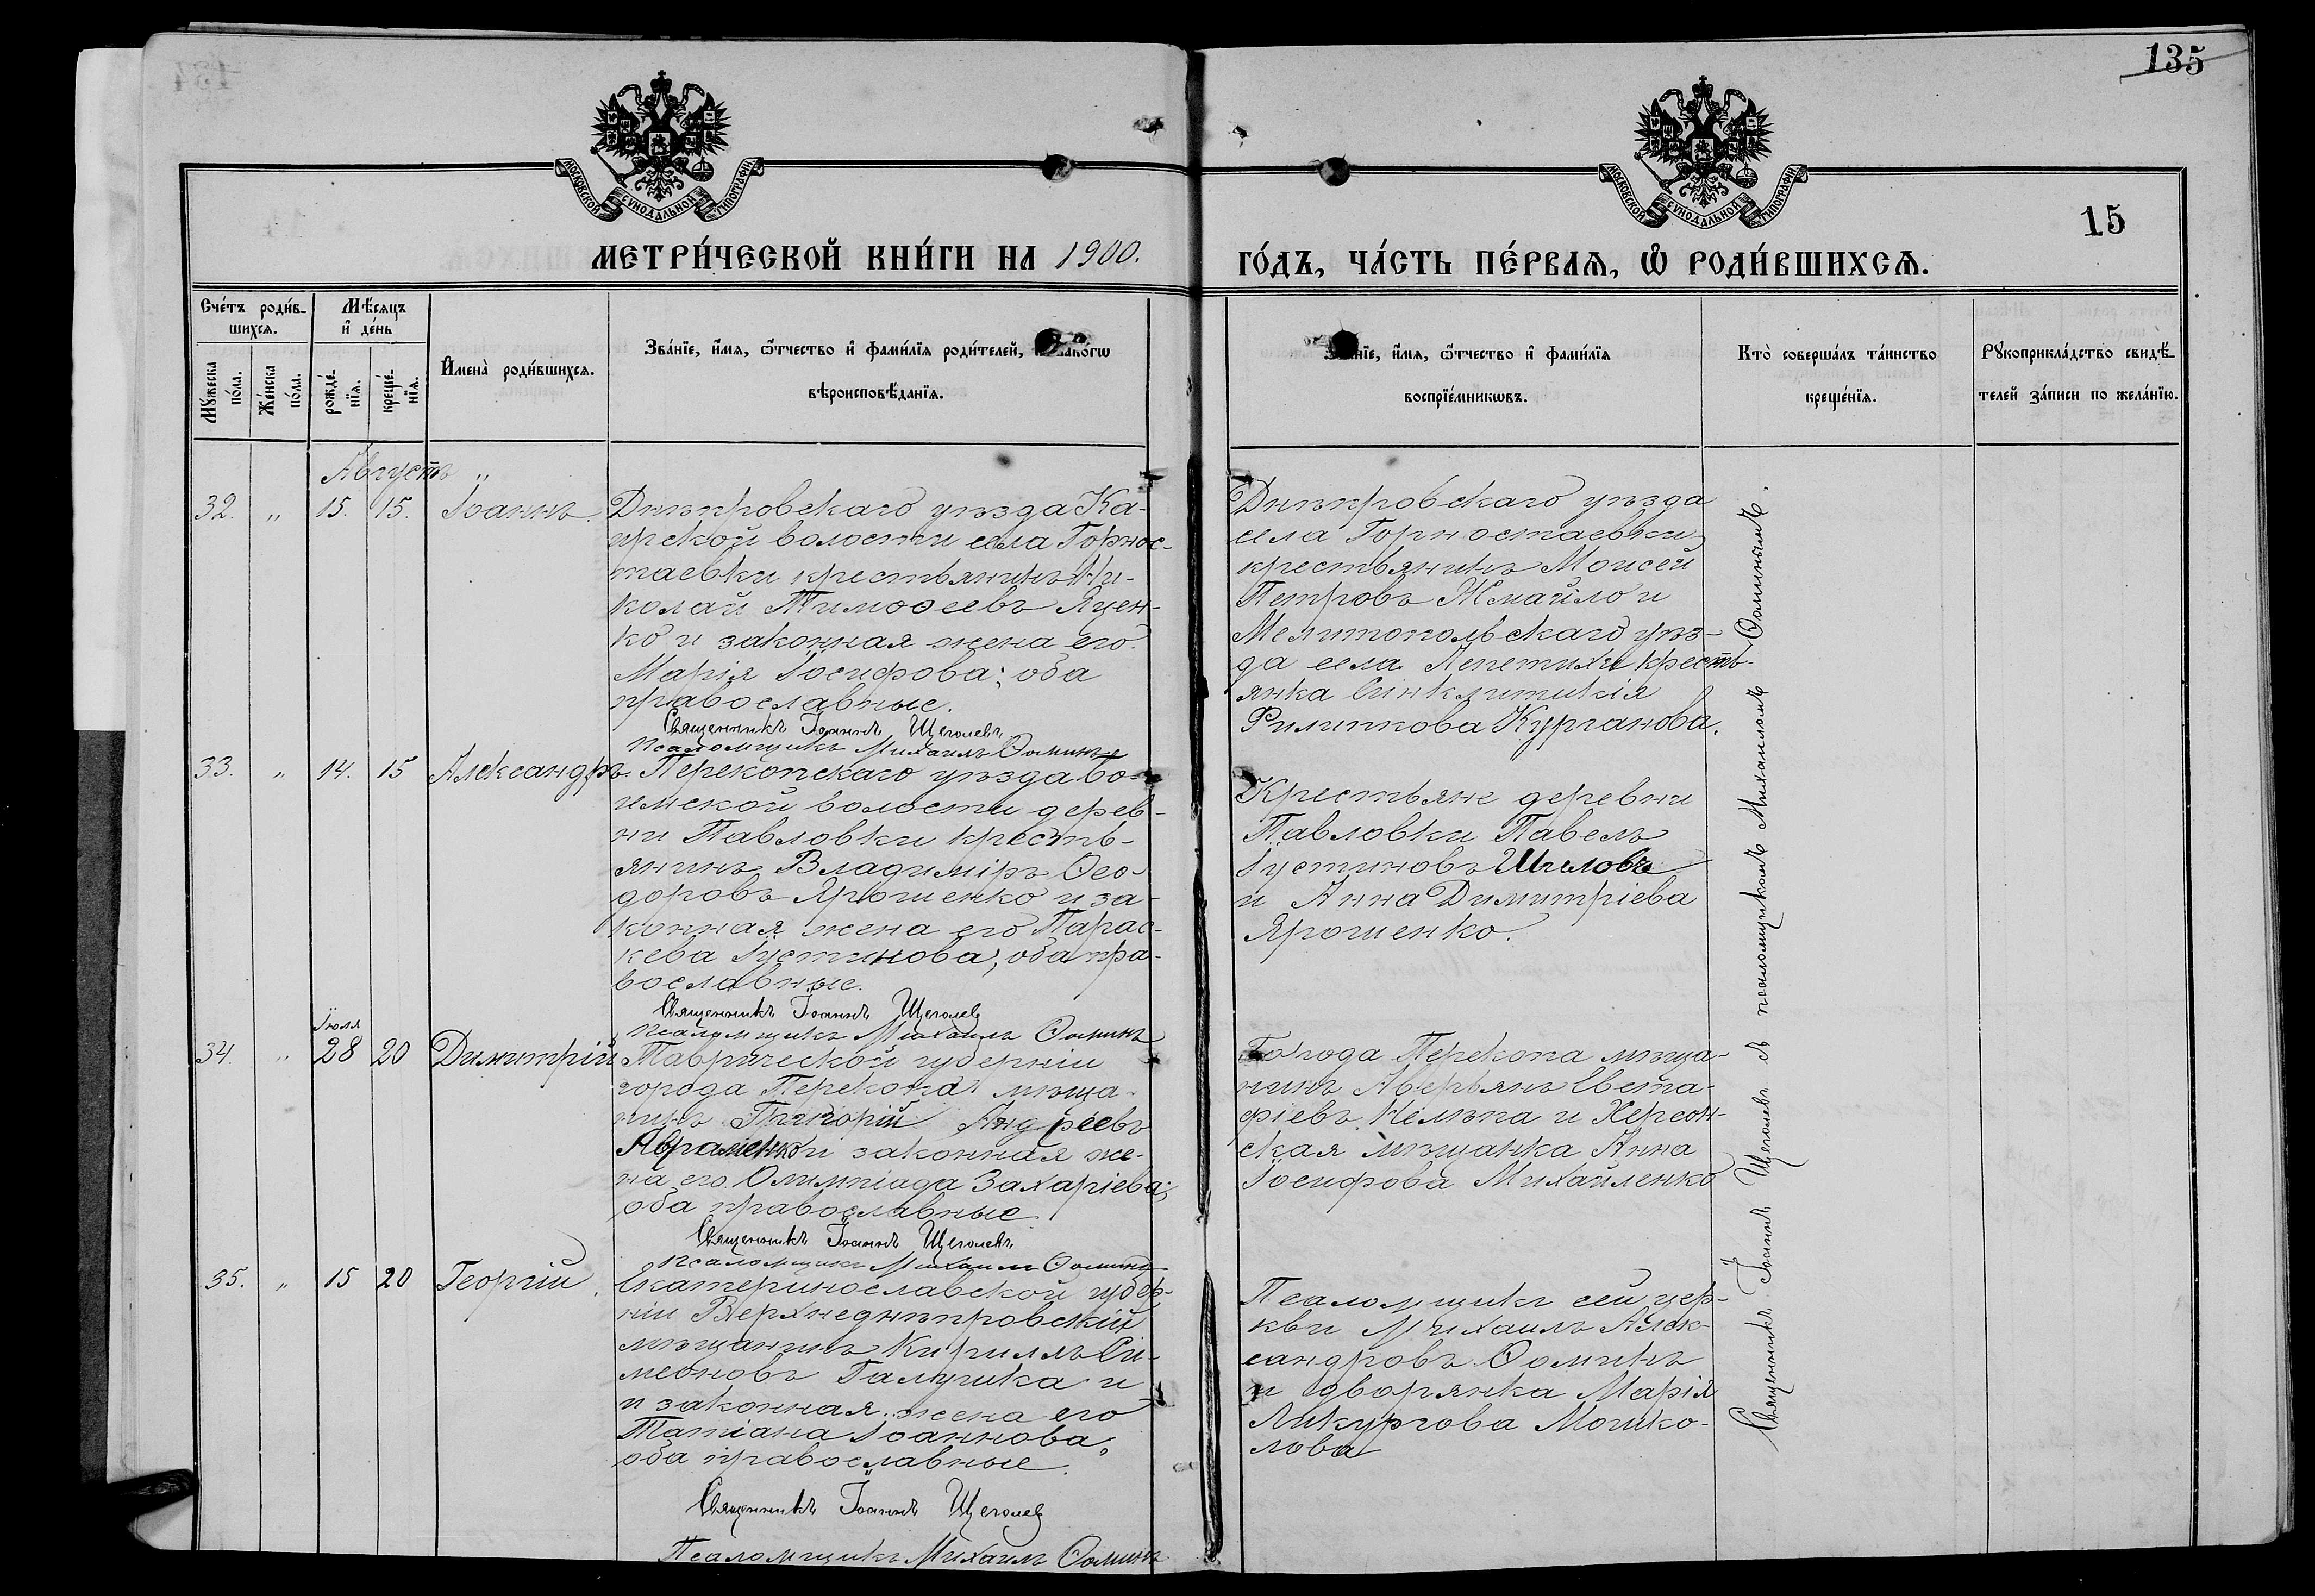 135
МОСКОВСКОЙ СУНОДАЛЬНОЙ ТИПОГРАФІИ
МОСКОВСКОЙ СУНОДАЛЬНОЙ ТИПОГРАФІИ
15
МЕТРИ́ЧЕСКОЙ КНИ́ГИ НА 1900.
ГО́ДЪ, ЧА́СТЬ ПЕ́РВАѦ, Ѽ РОДИ́ВШИХСѦ.
Сче́тъ роди́в-
шихсѧ.
Мѣ́сѧцъ
и҆ де́нь
Мꙋ́жеска по́ла.
Же́нска по́ла.
рожде́-нїѧ.
креще́-нїѧ.
И҆мена̀ роди́вшихсѧ.
Зва́нїе, и҆́мѧ, ѻ҆́тчество и҆ фами́лїѧ роди́телей, и҆ како́гѡ
вѣроисповѣ́данїѧ.
Зва́нїе, и҆́мѧ, ѻ҆́тчество и҆ фами́лїѧ
воспрїе́мникѡвъ.
Кто̀ соверша́лъ та́инство
креще́нїѧ.
Рꙋкоприкла́дство свидѣ́-
телей за́писи по жела́нїю.
Августъ „
32. „ 15. 15. Іоаннъ.
Днѣпровскаго уѣзда Ка-
ирской волости села Горнос-
таевки крестьянинъ Ни-
колай Тимоѳеевъ Яцен-
ко и законная жена его
Марія Іосифова; оба
православные.
Священникъ Іоаннъ Щеголевъ
Псаломщикъ Михаилъ Ѳоминъ
Днѣпровскаго уѣзда
села Горностаевки
крестьянинъ Моисей
Петровъ Жмайло и
Мелитопольскаго уѣз-
да села Лепетихи кресть-
янка Синклитикія
Филиппова Курганова.
33. „ 14. 15 Александръ.
Перекопскаго уѣзда Во-
имской волости дерев-
ни Павловки кресть-
янинъ Владиміръ Ѳео-
доровъ Ярошенко и за-
конная жена его Парас-
кева Іустинова; оба пра-
вославные.
Священникъ Іоаннъ Щеголев
Псаломщикъ Михаилъ Ѳоминъ
Крестьяне деревни
Павловки Павелъ
Іустиновъ Шиловъ
и Анна Димитріева
Ярошенко.
Іюля
34. „ 28 20 Димитрій
Таврической губерніи
города Перекопа мѣща-
нинъ Григорій Андреевъ
Авраменко и законная же-
на его Олимпіада Захаріева;
оба православные.
Священникъ Іоаннъ Щеголевъ
Псаломщикъ Михаилъ Ѳоминъ
Города Перекопа мѣща-
нинъ Аверьянъ Евста-
фіевъ и Херсон-
ская мѣщанка Анна
Іосифова Михайленко
35. „ 15 20 Георгій.
Екатеринославской губер-
ніи Верхнеднѣпровскій
мѣщанинъ Кириллъ Си-
меоновъ Галушка и
и законная жена его
Татіана Іоаннова,
оба православные.
Священникъ Іоаннъ Щеголев
Псаломщикъ Михаилъ Ѳоминъ
Псаломщикъ сей цер-
кви Михаилъ Алек-
сандровъ Ѳоминъ
и дворянка Марія
Ликургова Мошко-
лова
Священникъ Іоаннъ Щеголевъ съ псаломщикомъ Михаиломъ Ѳоминымъ.